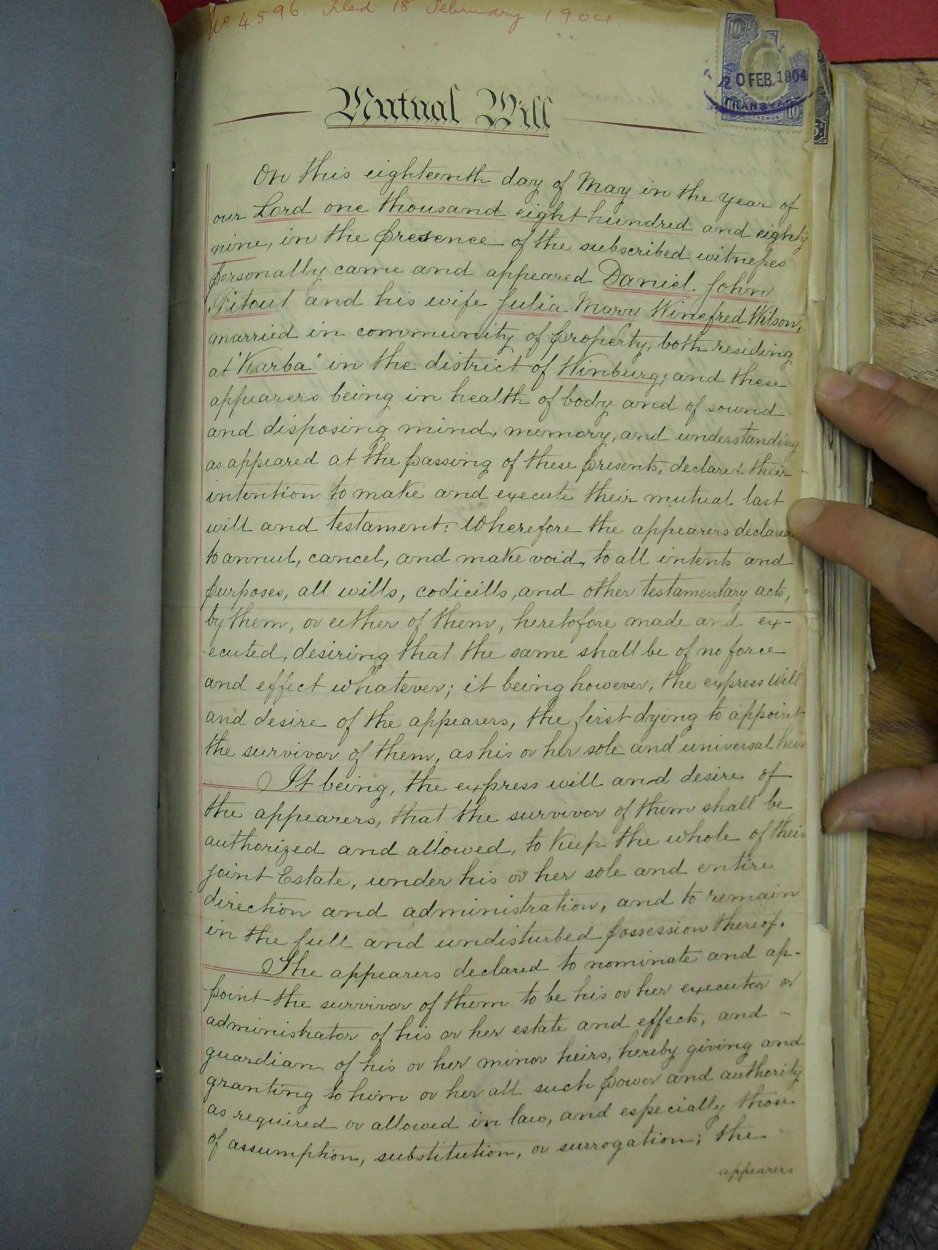 No. 4596 filed 18 February 1904.
20 FEB. 1904
TRANSVAAL
Mutual Will
On this eighteenth day of May in the year of
our Lord one thousand eight hundred and eighty
nine, in the presence of the subscribed witnesses
personally came and appeared Daniel John
Pitout and his wife Julia Mary Winefred Wilson,
married in community of property, both residing
at "Kurba" in the district of Winburg; and these
appearers being in health of body and of sound
and disposing mind, memory, and understanding
as appeared at the passing of these presents, declared their
intention to make and execute their mutual last
will and testament. Wherefore the appearers declared
to annul, cancel, and make void, to all intents and
purposes, all wills, codicills, and other testamentary acts,
by them, or either of them, heretofore made and ex-
ecuted, desiring that the same shall be of no force
and effect whatever; it being however, the express will
and desire of the appearers, the first dying to appoint
the survivor of them, as his or her sole and universal heir
It being, the express will and desire of
the appearers, that the survivor of them shall be
authorized and allowed, to keep the whole of their
joint Estate, under his or her sole and entire
direction and administration, and to remain
in the full and undisturbed possession thereof.
The appearers declared to nominate and ap-
point the survivor of them to be his or her executor or
administrator of his or her estate and effects, and
guardian of his or her minor heirs, hereby giving and
granting to him or her all such power and authority
as required or allowed in law, and especially those
of assumption, substitution, or surrogation; the
appearers